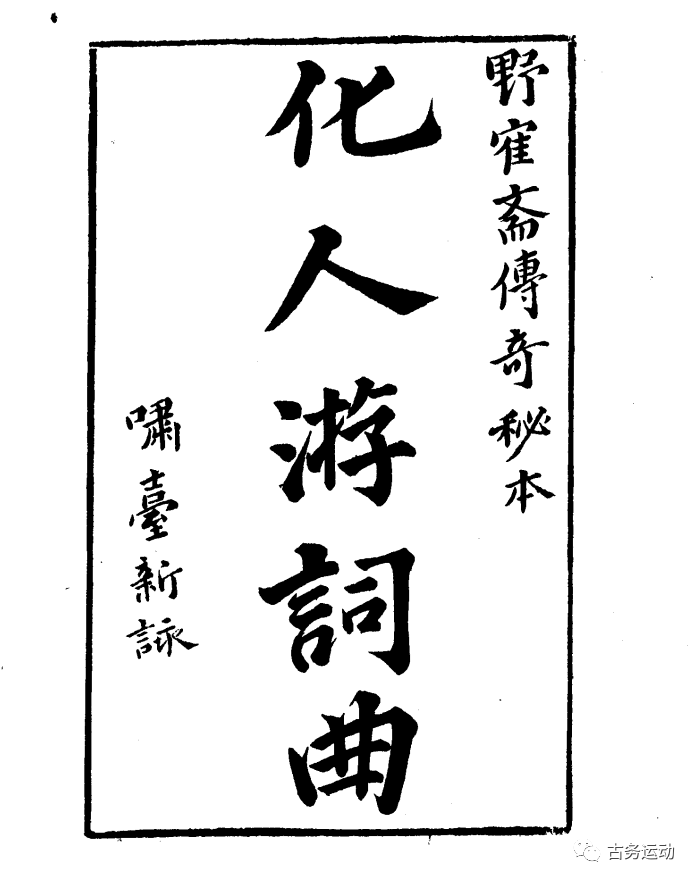 野寉斋傳奇秘本
化人游詞曲
嘯臺新詠
古务运动